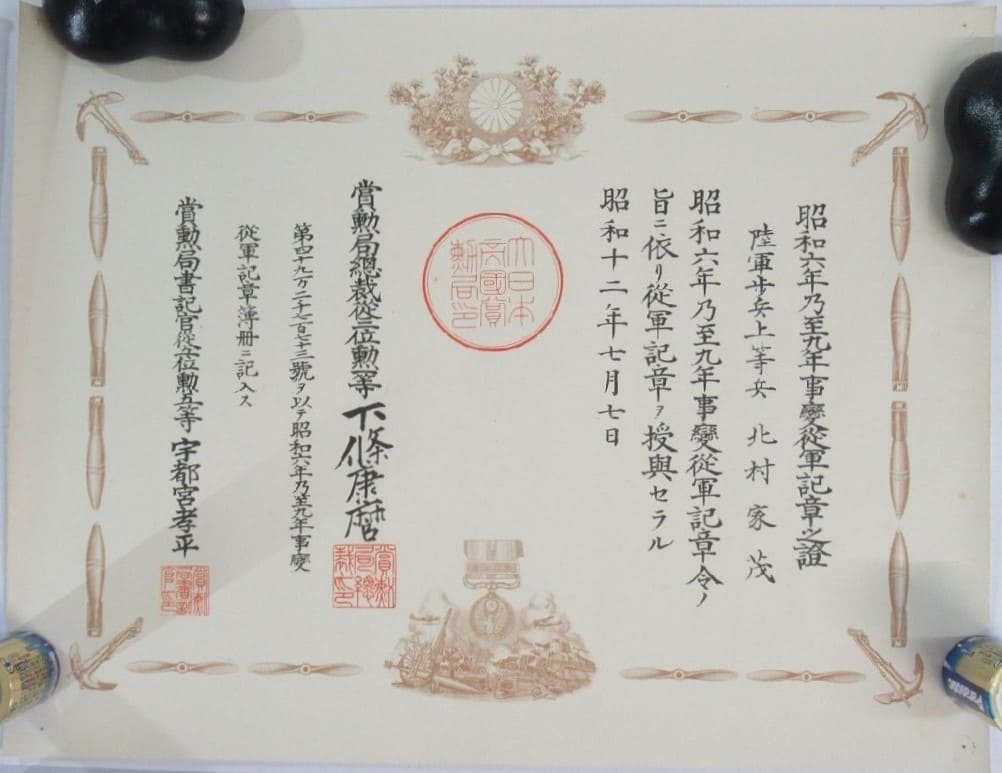 昭和六年乃至九年事變從軍記章之證
陸軍歩兵上等兵 北村家茂
昭和六年乃至九年事變從軍記章令ノ
旨ニ依リ從軍記章ヲ授與セラル
昭和十二年七月七日
大日本
帝國賞
勲局印
賞勲局總裁從三位勲二等下條康麿
賞勲
局總
裁印
第四十九万二千七百七十三號ヲ以テ昭和六年乃至九年事變
從軍記章簿册ニ記入ス
賞勲局書記官從五位勲五等宇都宮孝平
賞勲
局書記
官印
Panasonic